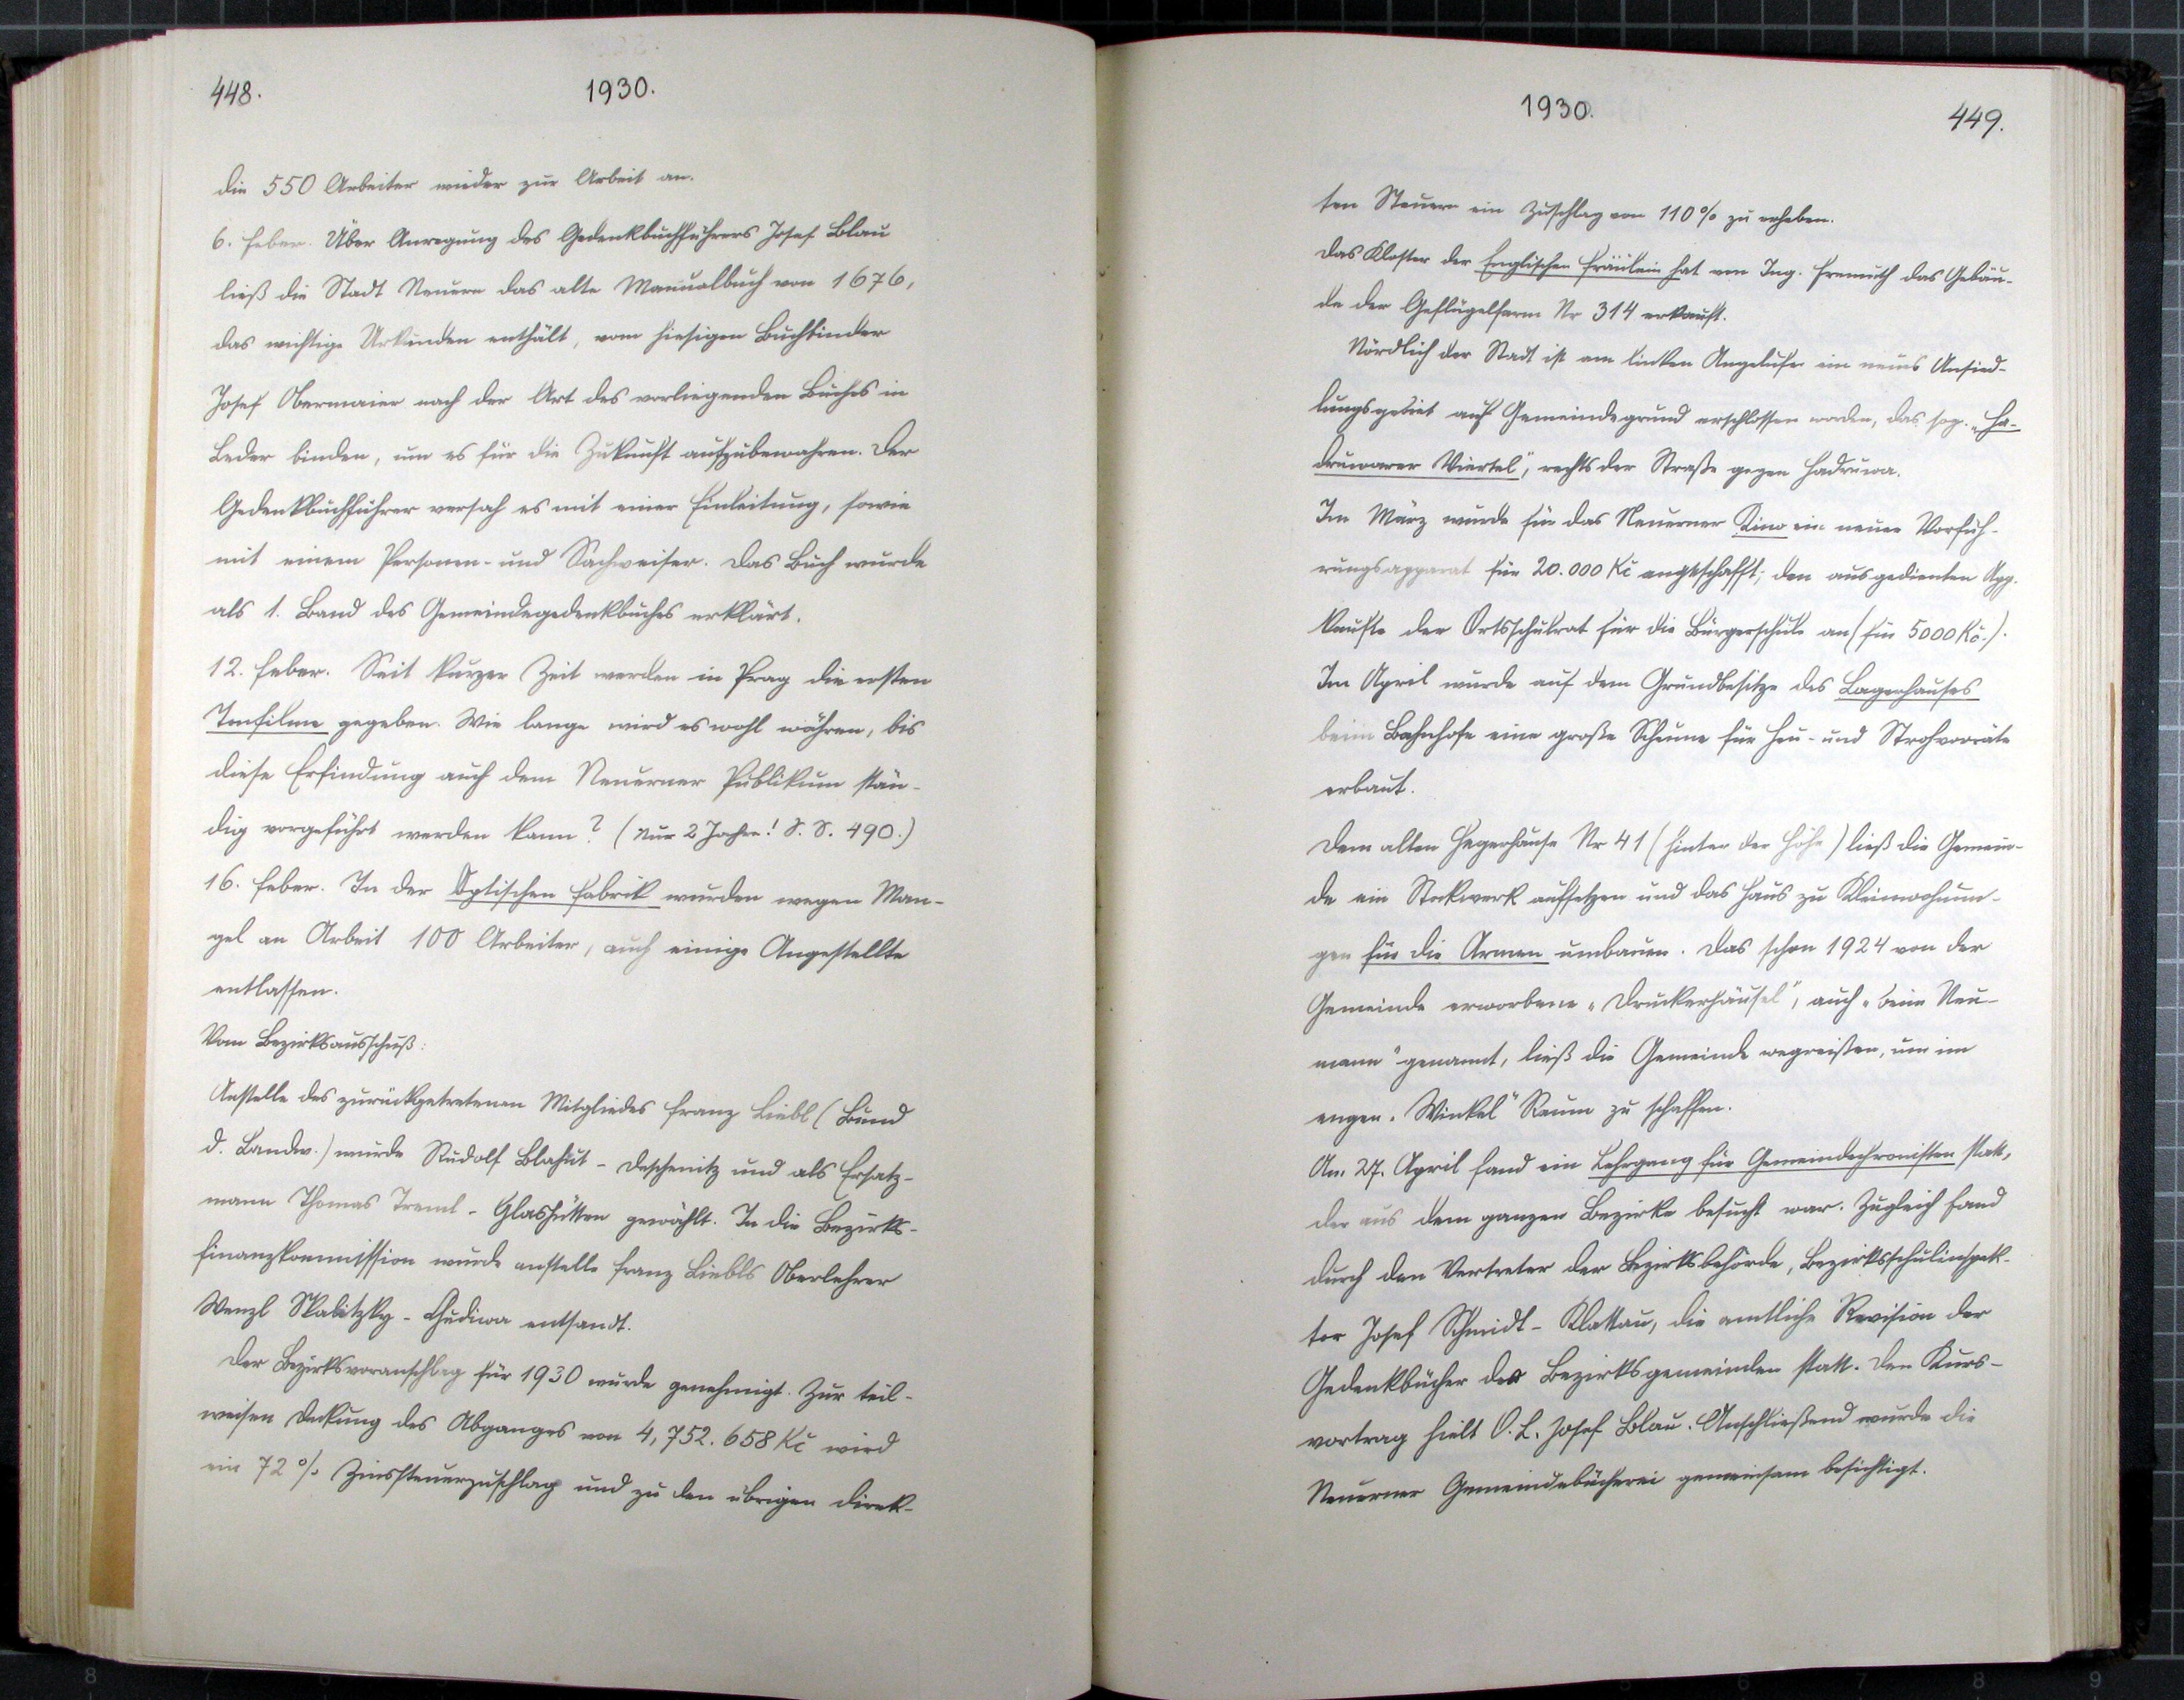 448.
1930.
die 550 Arbeiter wieder zur Arbeit an.
6. Feber. Über Anregung des Gedenkbuchführers Josef Blau
ließ die Stadt Neuern das alte Manualbuch von 1676,
das wichtige Urkunden enthält, vom hiesigen Buchbinder
Josef Obermaier nach der Art des vorliegenden Buches in
Leder binden, um es für die Zukunft aufzubewahren. Der
Gedenkbuchführer versah es mit einer Einleitung, sowie
mit einem Personen- und Sachweiser. Das Buch wurde
als 1. Band des Gemeindegedenkbuches erklärt.
12. Feber. Seit kurzer Zeit werden in Prag die ersten
Tonfilme gegeben. Wie lange wird es wohl währen, bis
diese Erfindung auch dem Neuerner Publikum stän-
dig vorgeführt werden kann? (Nur 2 Jahre! S. S. 490.)
16. Feber. In der Optischen Fabrik wurden wegen Man-
gel an Arbeit 100 Arbeiter, auch einige Angestellte
entlassen.
Vom Bezirksausschuß:
Anstelle des zurückgetretenen Mitgliedes Franz Liebl (Bund
d. Landw.) wurde Rudolf Blahut - Deschenitz und als Ersatz-
mann Thomas Treml - Glashütten gewählt. In die Bezirks-
finanzkommission wurde anstelle Franz Liebls Oberlehrer
Wenzl Skalitzky - Chudiwa entsandt.
Der Bezirksvoranschlag für 1930 wurde genehmigt. Zur teil-
weisen Deckung des Abganges von 4,752.658 Kč wird
ein 72% Zinssteuerzuschlag und zu den übrigen direk-
1930.
449.
ten Steuern ein Zuschlag von 110% zu erheben.
Das Kloster der Englischen Fräulein hat von Ing. Fremuth das Gebäu-
de der Geflügelfarm Nr 314 erkauft.
Nördlich der Stadt ist am linken Angelufer ein neues Ansied-
lungsgebiet auf Gemeindegrund erschlossen worden, das sog. „Ha-
druwarer Viertel", rechts der Straße gegen Hadruwa.
Im März wurde für das Neuerner Kino ein neuer Vorfüh-
rungsapparat für 20.000 Kč angeschafft; den ausgedienten App.
kaufte der Ortsschulrat für die Bürgerschule an (für 5000 Kč.).
Im April wurde auf dem Grundbesitze des Lagerhauses
beim Bahnhofe eine große Scheune für Heu- und Strohvorräte
erbaut.
Dem alten Hegerhause Nr 41 (hinter der Höhe) ließ die Gemein-
de ein Stockwerk aufsetzen und das Haus zu Kleinwohnun-
gen für die Armen umbauen. Das schon 1924 von der
Gemeinde erworbene „Druckerhäusel", auch „beim Neu-
mann" genannt, ließ die Gemeinde wegreißen, um im
engen „Winkel" Raum zu schaffen.
Am 27. April fand ein Lehrgang für Gemeindechronisten statt,
der aus dem ganzen Bezirke besucht war. Zugleich fand
durch den Vertreter der Bezirksbehörde, Bezirksschulinspek-
tor Josef Schmidt - Klattau, die amtliche Revision der
Gedenkbücher der Bezirksgemeinden statt. Den Kurs-
vortrag hielt O. L. Josef Blau. Anschließend wurde die
Neuerner Gemeindebücherei gemeinsam besichtigt.
8
7
5
6
7
8
9